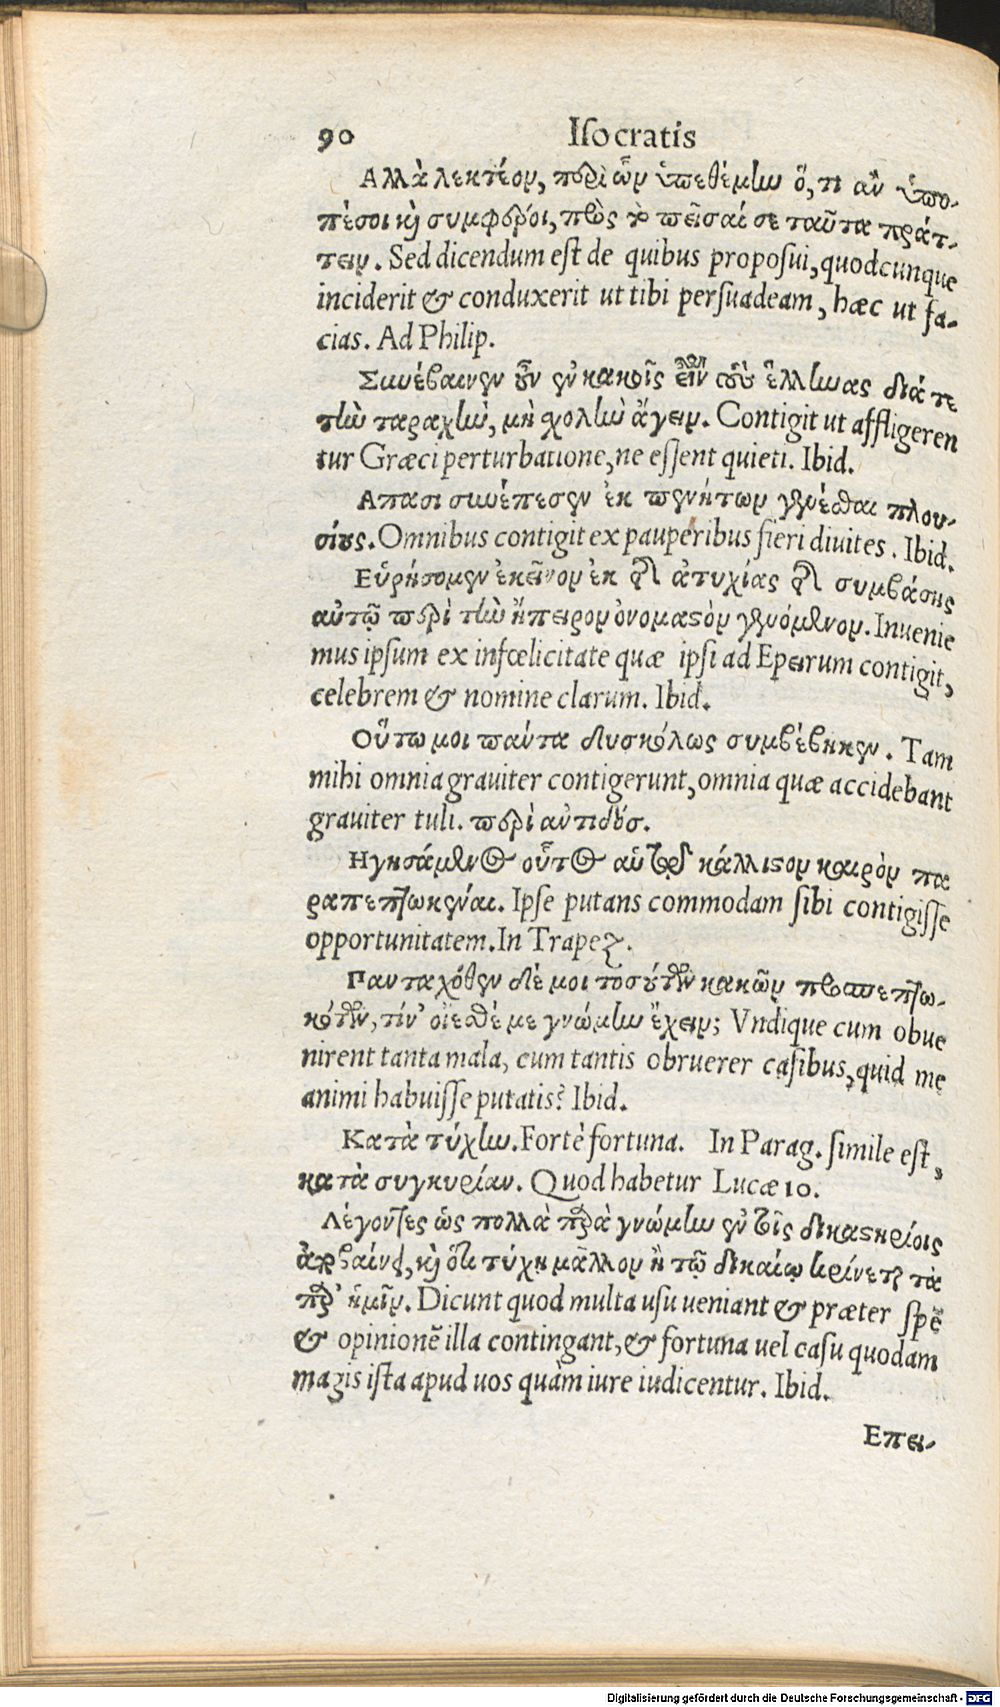 90 Isocratis
Αλλὰ λεκτέον, περὶ ὧν ὑπεθέμην ὅ, τι ἂν ὑπο-
πέσοι καὶ συμφέροι, πρὸς τὸ πεῖσαί σε ταῦτα πράτ-
τειν. Sed dicendum est de quibus proposui, quodcunque
inciderit & conduxerit ut tibi persuadeam, hæc ut fa-
cias. Ad Philip.
Συνέβαινεν οὖν ἐν κακοῖς εἶναι τοὺς ἕλληνας διά τε
τὴν ταραχὴν, μὴ σχολὴν ἄγειν. Contigit ut affligeren
tur Græci perturbatione, ne essent quieti. Ibid.
Απασι συνέπεσεν ἐκ πενήτων γενέσθαι πλου-
σίους. Omnibus contigit ex pauperibus fieri divites. Ibid.
Εὑρήσομεν ἐκεῖνον ἐκ τῆς ἀτυχίας τῆς συμβάσης
αὐτῷ περὶ τὴν ἤπειρον ὀνομαστὸν γενόμενον. Invenie
mus ipsum ex infœlicitate quæ ipsi ad Epeirum contigit,
celebrem & nomine clarum. Ibid.
Οὕτω μοι πάντα δυσκόλως συμβέβηκεν. Tam
mihi omnia graviter contigerunt, omnia quæ accidebant
graviter tuli. περὶ αντιδόσ.
Ηγησάμενος οὗτος αὑτῷ κάλλιστον καιρὸν πα
ραπεπτωκέναι. Ipse putans commodam sibi contigisse
opportunitatem. In Trapez.
Πανταχόθεν δέ μοι τοσούτων κακῶν προσπεπτω-
κότων, τίν' οἴεσθέ με γνώμην ἔχειν; Vndique cum obue
nirent tanta mala, cum tantis obruerer casibus, quid me
animi habuisse putatis? Ibid.
Κατὰ τύχην. Fortè fortuna. In Parag. simile est,
κατὰ συγκυρίαν. Quod habetur Lucæ 10.
Λέγοντες ὡς πολλὰ παρὰ γνώμην ἐν τοῖς δικαστηρίοις
ἀποβαίνει, καὶ ὅτι τύχῃ μᾶλλον ἢ τῷ δικαίῳ κρίνεται τὰ
παρ' ἡμῖν. Dicunt quod multa usu veniant & præter spē
& opinionē illa contingant, & fortuna vel casu quodam
magis ista apud vos quàm iure iudicentur. Ibid.
Επει-
Digitalisierung gefördert durch die Deutsche Forschungsgemeinschaft - DFG